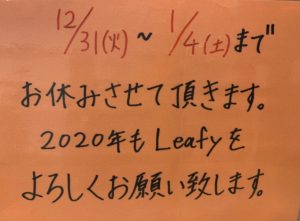 12/31(火)～1/4(土)まで
お休みさせて頂きます。
2020年もLeafyを
よろしくお願い致します。